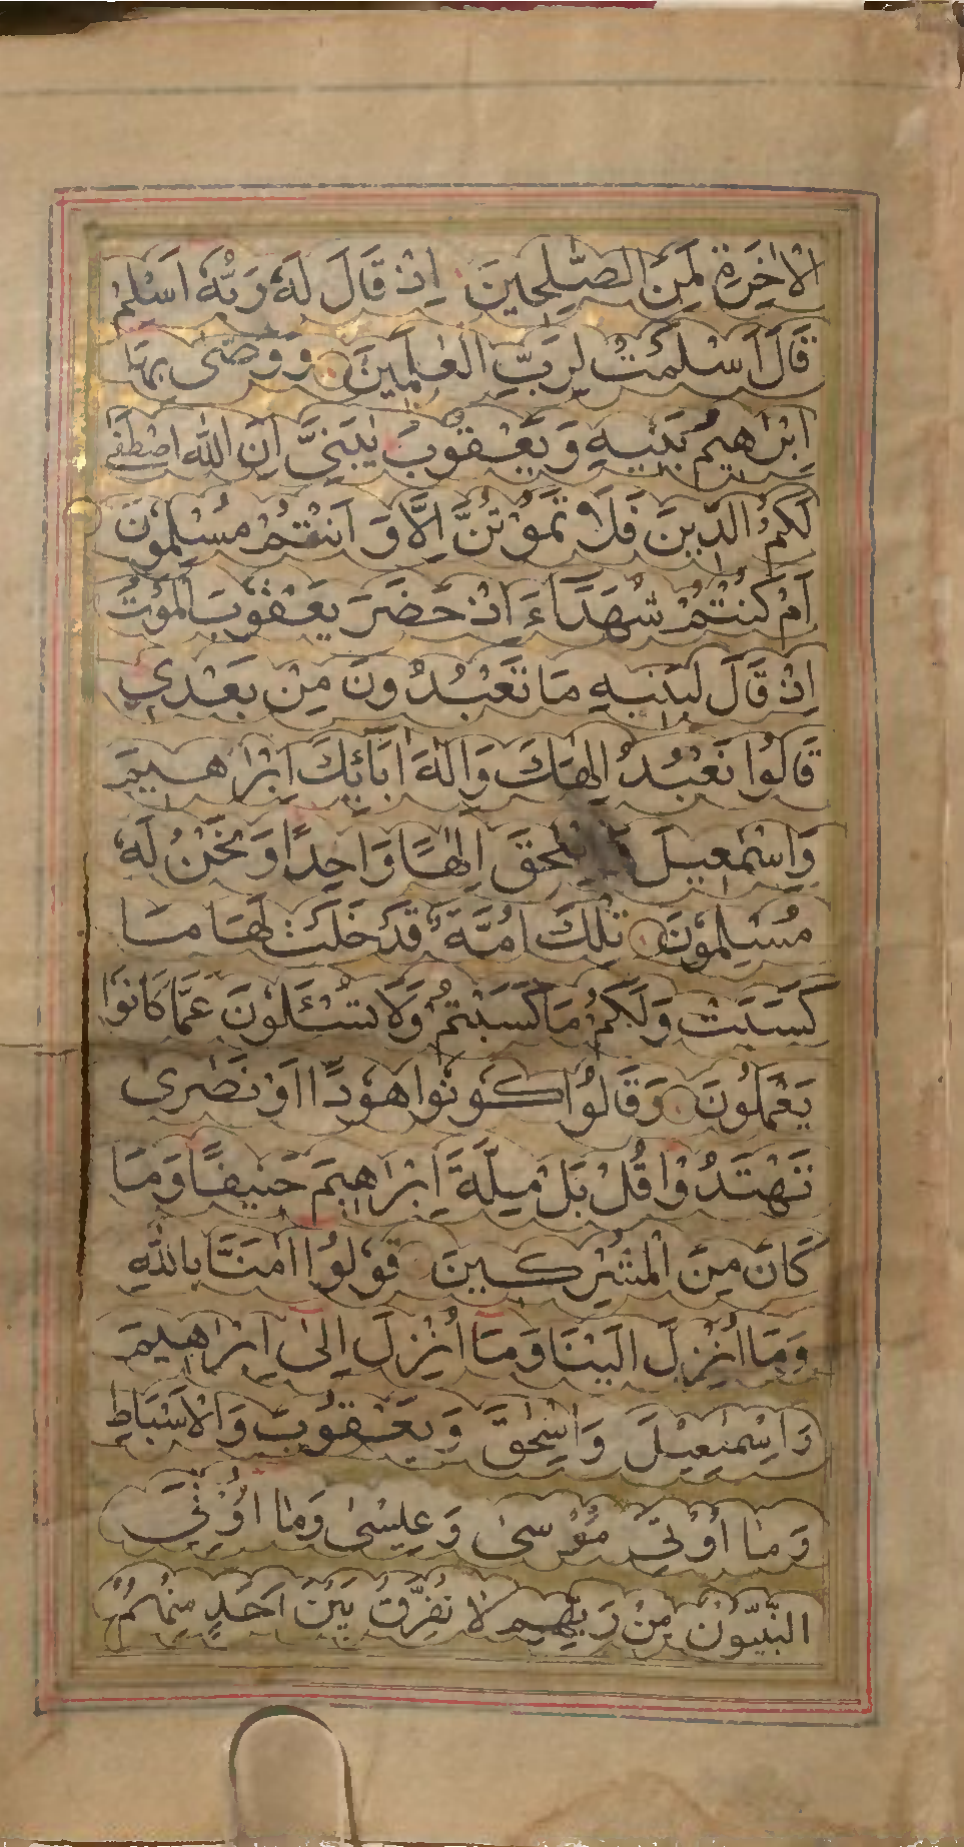 الْاٰخِرَةِ لَمِنَ الصّٰلِحِيْنَ اِذْ قَالَ لَهٗ رَبُّهٗ اَسْلِمْ
قَالَ اَسْلَمْتُ لِرَبِّ الْعٰلَمِيْنَ وَوَصّٰى بِهَا
اِبْرٰهِيْمُ بَنِيْهِ وَيَعْقُوْبُ يٰبَنِيَّ اِنَّ اللّٰهَ اصْطَفٰى
لَكُمُ الدِّيْنَ فَلَا تَمُوْتُنَّ اِلَّا وَاَنْتُمْ مُسْلِمُوْنَ
اَمْ كُنْتُمْ شُهَدَآءَ اِذْ حَضَرَ يَعْقُوْبَ الْمَوْتُ
اِذْ قَالَ لِبَنِيْهِ مَا تَعْبُدُوْنَ مِنْ بَعْدِيْ
قَالُوْا نَعْبُدُ اِلٰهَكَ وَاِلٰهَ اٰبَآئِكَ اِبْرٰهِيْمَ
وَاِسْمٰعِيْلَ وَاِسْحٰقَ اِلٰهًا وَاحِدًا وَنَحْنُ لَهٗ
مُسْلِمُوْنَ تِلْكَ اُمَّةٌ قَدْ خَلَتْ لَهَا مَا
كَسَبَتْ وَلَكُمْ مَا كَسَبْتُمْ وَلَا تُسْـَٔلُوْنَ عَمَّا كَانُوْا
يَعْمَلُوْنَ وَقَالُوْا كُوْنُوْا هُوْدًا اَوْ نَصٰرٰى
تَهْتَدُوْا قُلْ بَلْ مِلَّةَ اِبْرٰهِيْمَ حَنِيْفًا وَمَا
كَانَ مِنَ الْمُشْرِكِيْنَ قُوْلُوْا اٰمَنَّا بِاللّٰهِ
وَمَا اُنْزِلَ اِلَيْنَا وَمَا اُنْزِلَ اِلٰى اِبْرٰهِيْمَ
وَاِسْمٰعِيْلَ وَاِسْحٰقَ وَيَعْقُوْبَ وَالْاَسْبَاطِ
وَمَا اُوْتِيَ مُوْسٰى وَعِيْسٰى وَمَا اُوْتِيَ
النَّبِيُّوْنَ مِنْ رَبِّهِمْ لَا نُفَرِّقُ بَيْنَ اَحَدٍ مِنْهُمْ